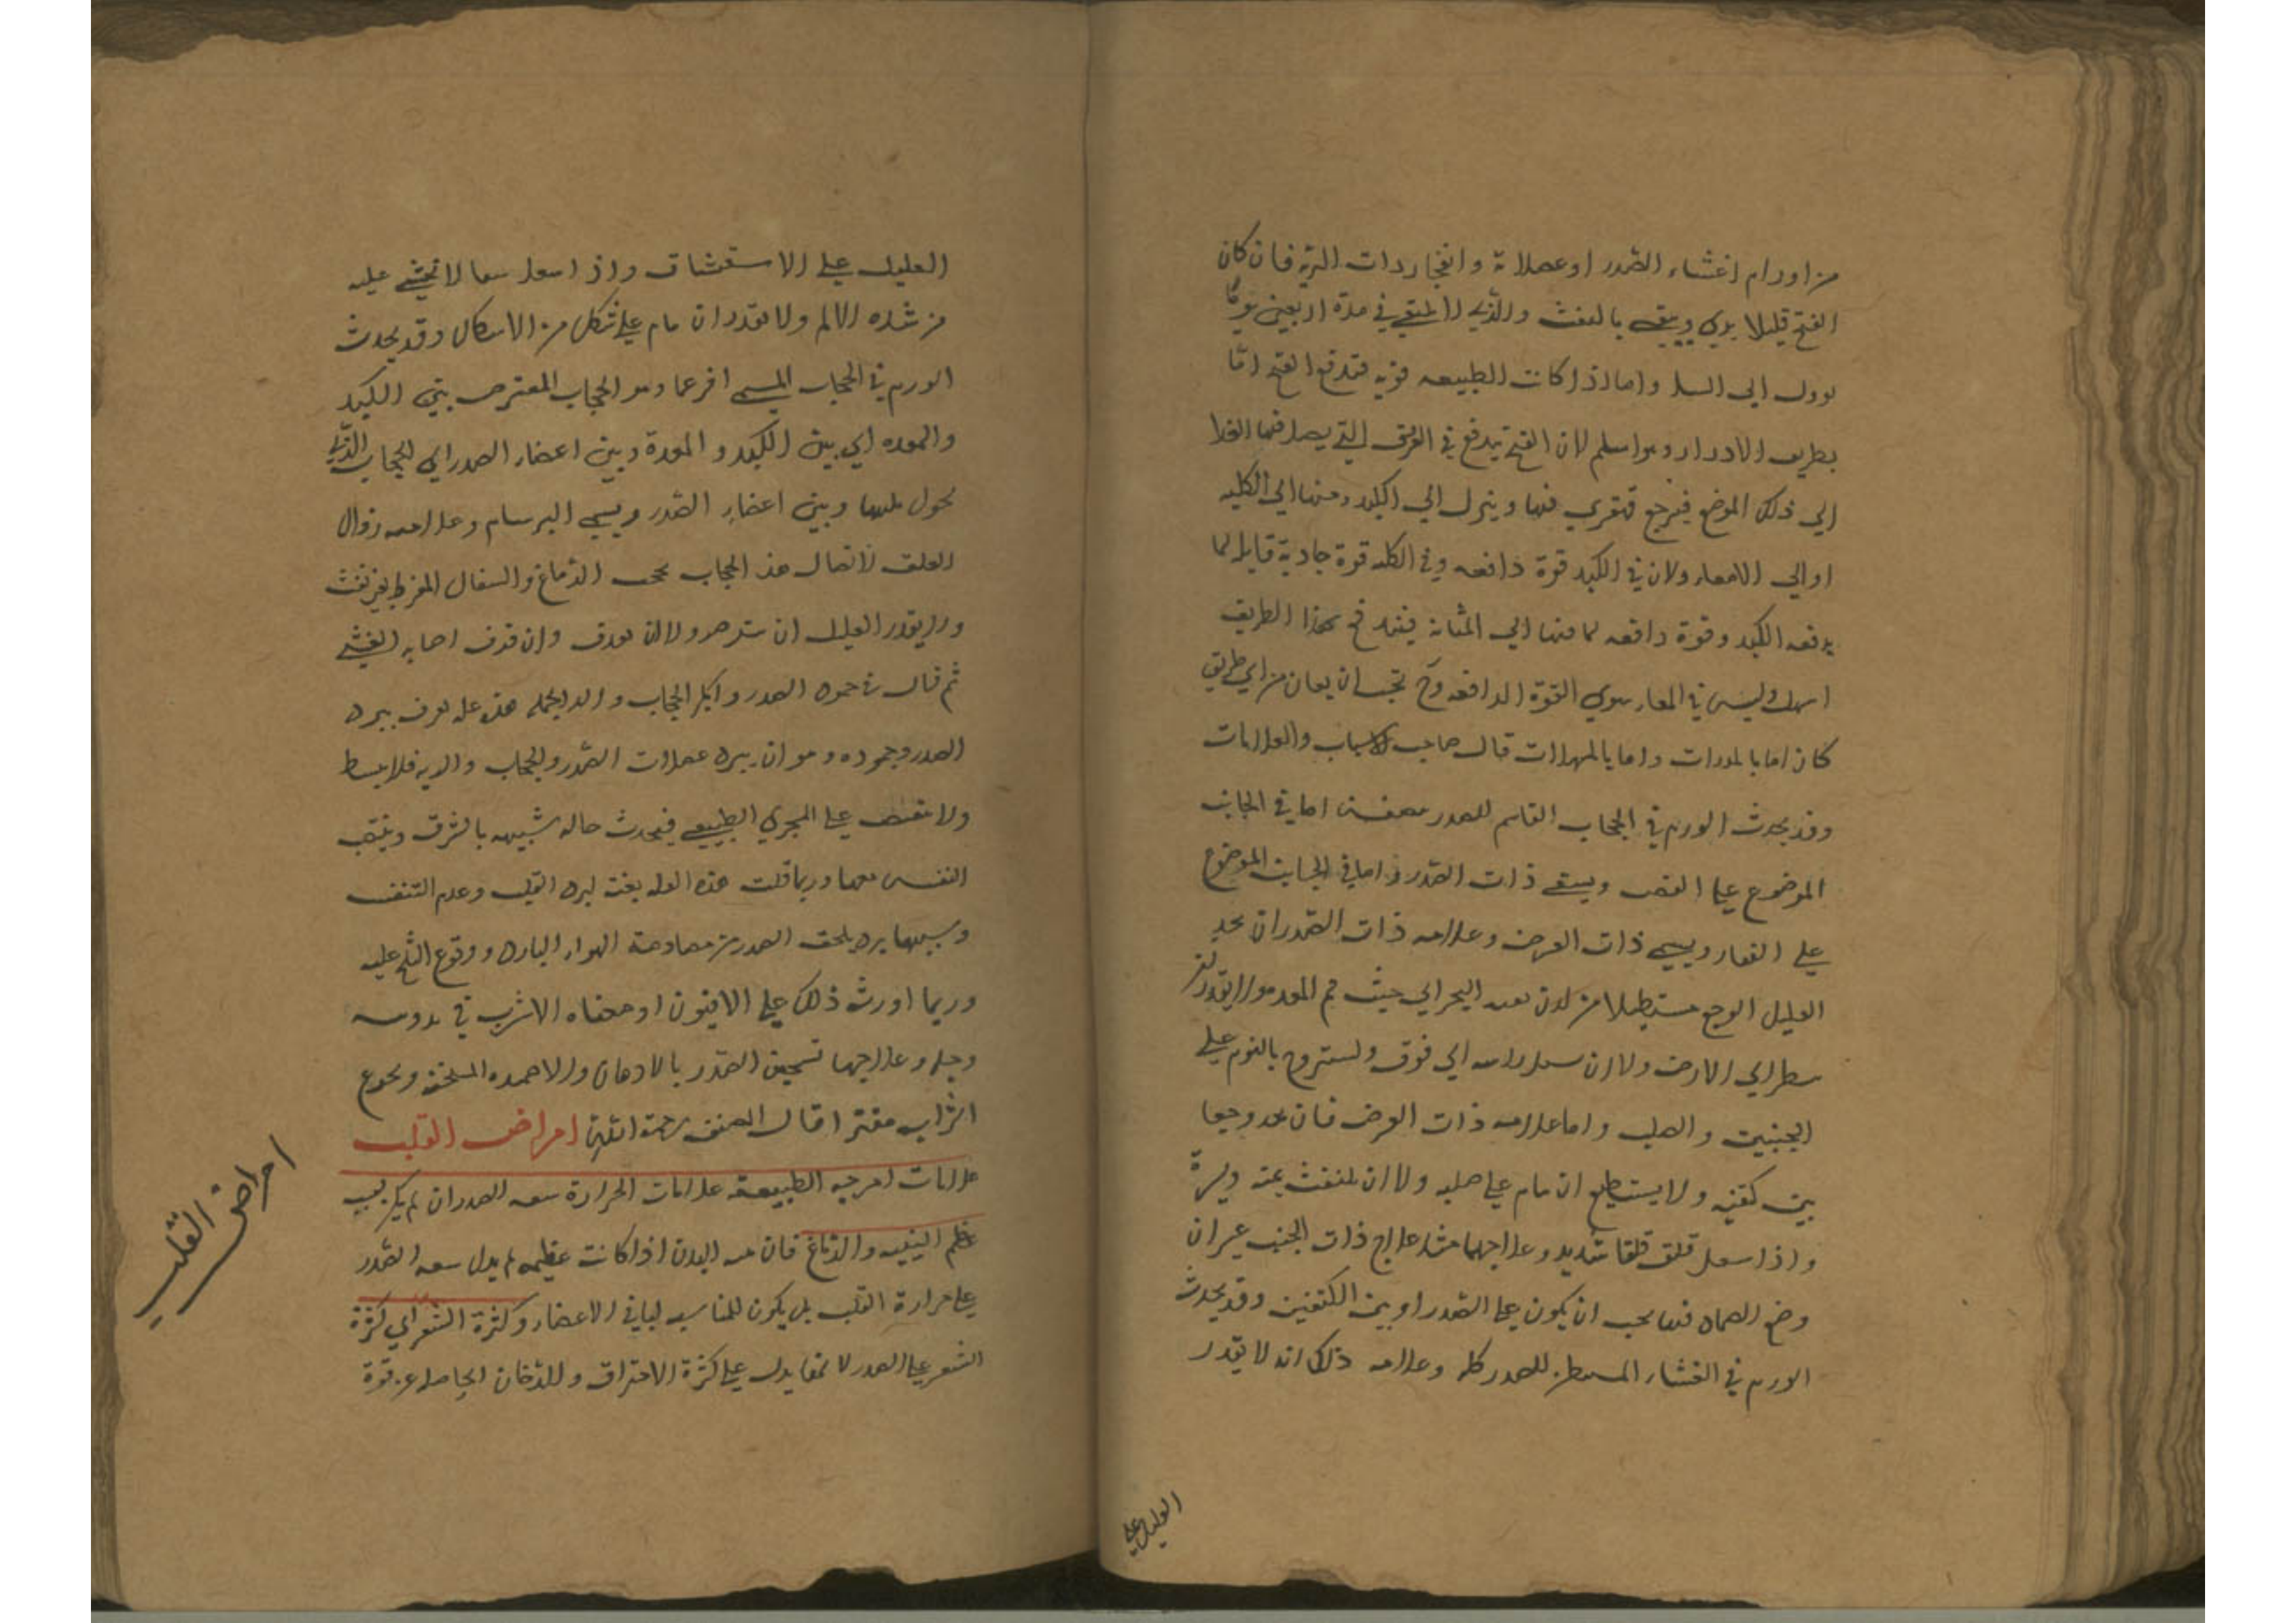 من اورام اغشاء الصدر او عضلاته وانفجار ذات الرية فان كان
القيح قليلا يبري وينقي بالنفث والذي لا ينقي في مدة اربعين يوما
يوول الي السل واما اذا كانت الطبيعه قويه فتدفع القيح اما
بطريق الادرار وهو اسلم لان القيح يندفع في العرق التي يصل فيها الغذا
الي ذلك الموضع فيرجع قهقري فيها وينزل الي الكبد ومنها الي الكليه
او الي الامعاء ولان في الكبد قوة دافعه وفي الكليه قوة جاذبة قابله لما
يدفعه الكبد وقوة دافعه لما فيها الي المثانة فيندفع بهذا الطريق
اسهل وليس في المعاء سوي القوة الدافعه وح يجب ان يعان من اي طريق
كان اما بالمدرات واما بالمسهلات قال صاحب الاسباب والعلامات
وقد يحدث الورم في الحجاب القاسم للصدر بنصفين اما في الجانب
الموضوع علي القص ويسمي ذات الصدر واما في الجانب الموضوع
علي الفقار ويسمي ذات العرض وعلامه ذات الصدر ان يجد
العليل الوجع مستطيلا من لدن نحر الي حيث فم المعده ولا يقدر ان
ينظر الي الارض ولا ان راسه الي فوق ويستروح بالنوم علي
الجنبين والصلب واما علامه ذات العرض فان يجد وجعا
بين كتفيه ولا يستطيع ان ينام علي صلبه ولا ان يلتفت يمنة ويسرة
واذا سعل قلق قلقا شديدا وعلاجهما مثل علاج ذات الجنب غير ان
وضع الضماد فيها يجب ان يكون علي الصدر او بين الكتفين وقد يحدث
الورم في الغشاء المستبطن للصدر كله وعلامه ذلك انه لا يقدر
العليل علي
العليل علي الاستنشاق واذا سعل سعالا يغشي عليه
من شده الالم ولا يقدر ان ينام علي شكل من الاشكال وقد يحدث
الورم في الحجاب المسمي افرغما وهو الحجاب المعترض بين الكبد
والمعده اي بين الكبد والمعدة وبين اعضاء الصدر اي الحجاب الذي
يحول بينها وبين اعضاء الصدر ويسمي البرسام وعلامته زوال
العقل لاتصال هذا الحجاب بحجب الدماغ والسعال المفرط بغير نفث
ولا يقدر العليل ان ولا ان وان قذف اصابه الغشي
ثم قال في جمود الصدر والحجاب والريه هذه عله تعرف ببرد
الصدر وجموده وهو ان يبرد عضلات الصدر والحجاب والريه فلا ينبسط
ولا ينقبض علي المجري الطبيعي فيحدث حاله شبيهه بالشرق وينتصب
النفس معها وربما قتلت هذه العله بغتة لبرد القلب وعدم التنفس
وسببها برد يلحق الصدر من مصادمة الهواء البارد ووقوع الثلج عليه
وربما اورث ذلك علي الافيون او الاشرب في
وعلاجها تسخين الصدر بالادهان والاضمده المسخنه ويجرع
الشراب مفترا قال المصنف رحمة الله امراض القلب
علامات امزجيه الطبيعه علامات الحرارة سعه الصدر ان لم يكن بسبب
عظم البنيه والدماغ فان البدن اذا كانت عظيمه لم يدل سعه الصدر
علي حرارة القلب بل يكون للمناسبه لباقي الاعضاء وكثرة الشعر اي كثرة
الشعر علي الصدر لانها يدل علي كثرة الاحتراق وللدخان الحاصل عن قوة
امراض القلب